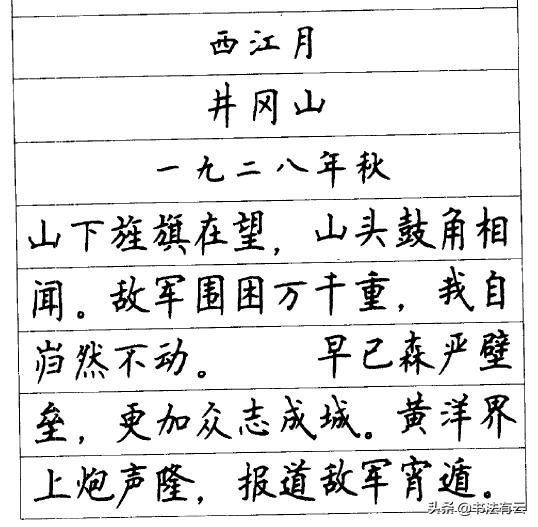 西江月
井冈山
一九二八年秋
山下旌旗在望，山头鼓角相
闻。敌军围困万千重，我自
岿然不动。 早已森严壁
垒，更加众志成城。黄洋界
上炮声隆，报道敌军宵遁。
头条 @书法有云